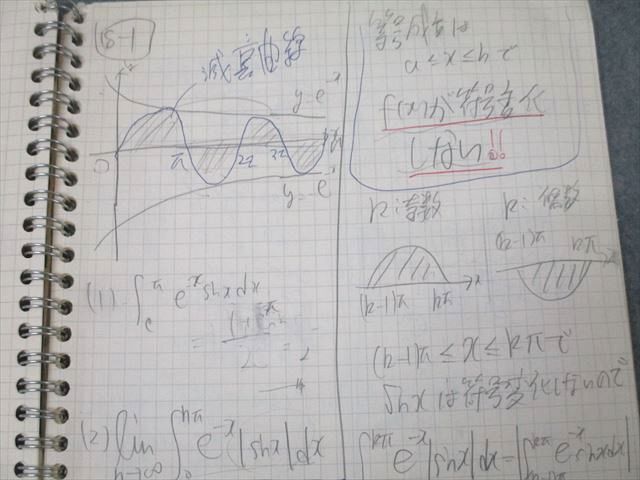 18-1
減衰曲線
y=e^{-x}
O π 2π 3π
y=-e^{-x}
(1) ∫_0^π e^{-x} sin x dx
(2) lim_{n→∞} ∫_0^{nπ} e^{-x} |sin x| dx
a≦x≦bで
f(x)が符号変化
しない!!
k:奇数
(k-1)π kπ x
k:偶数
(k-1)π kπ x
(k-1)π ≦ x ≦ kπ で
sin x は符号変化しないので
∫ e^{-x} |sin x| dx = | ∫ e^{-x} sin x dx |